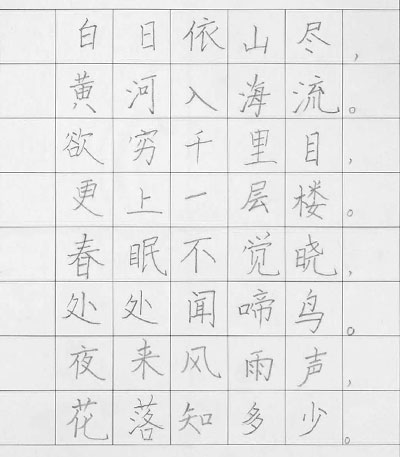 白日依山尽，
黄河入海流。
欲穷千里目，
更上一层楼。
春眠不觉晓，
处处闻啼鸟。
夜来风雨声，
花落知多少。